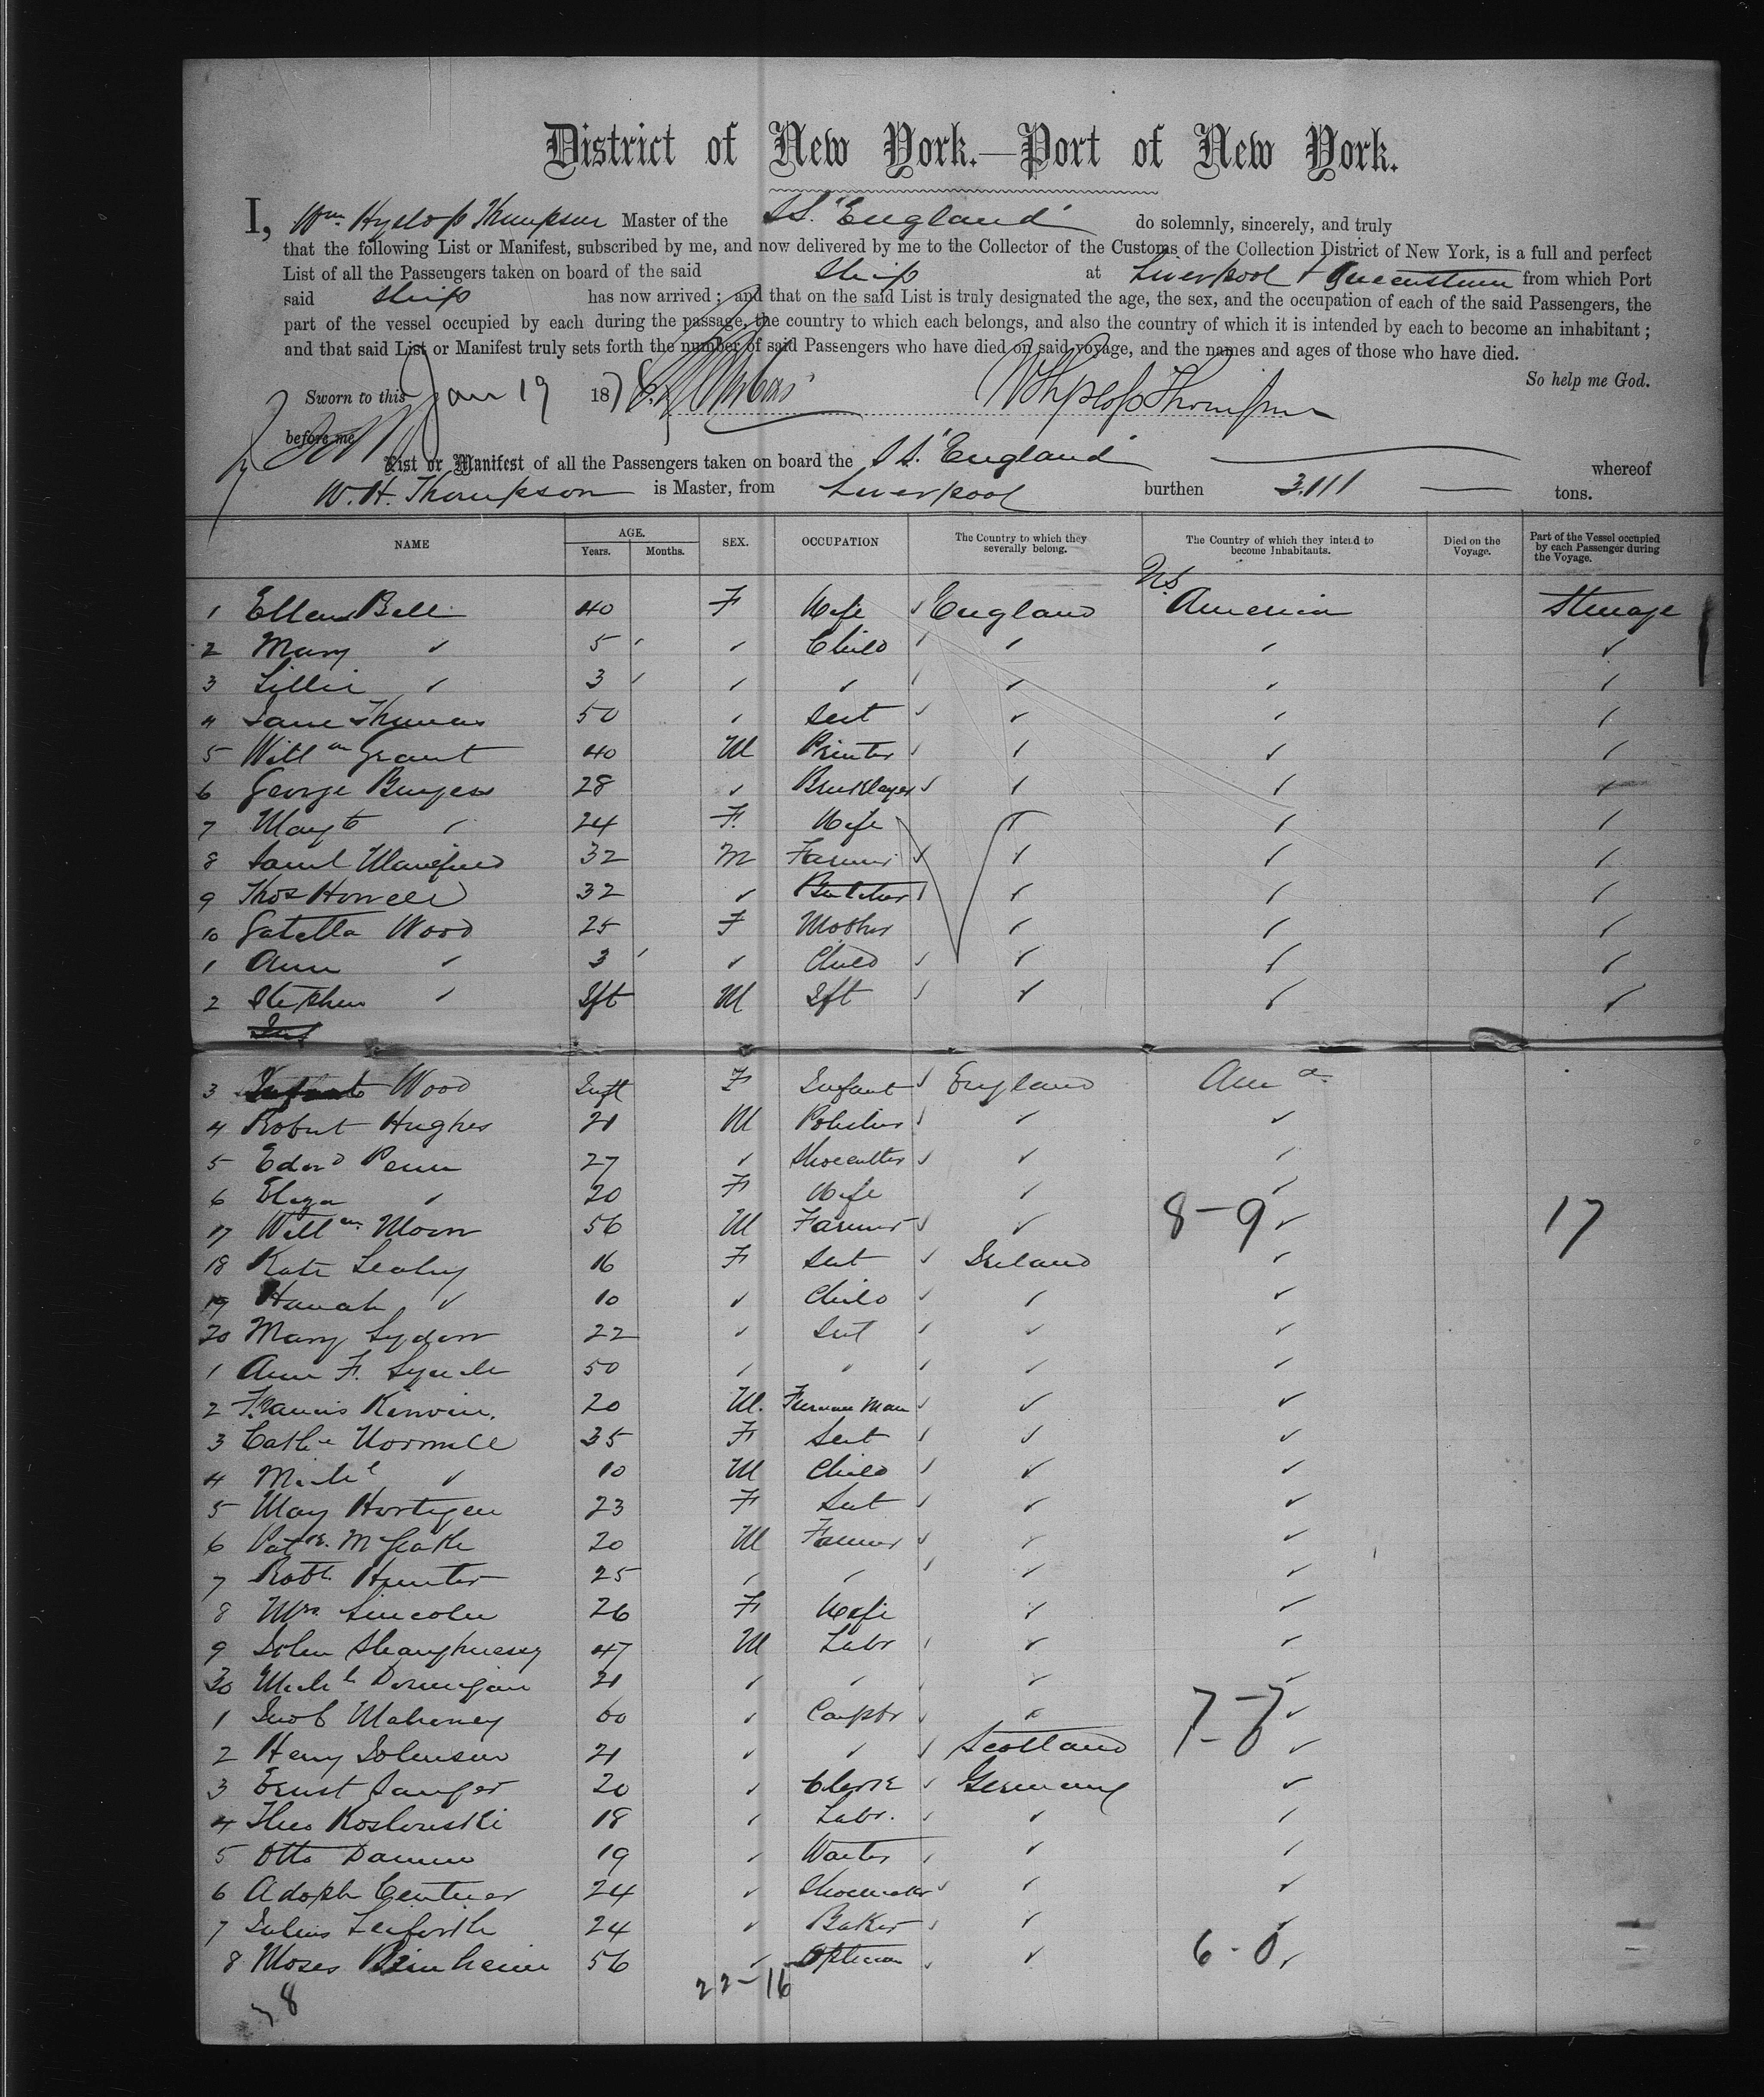 District of New York.—Port of New York.
I, Wm Hyslop Thompson Master of the S.S. "England" do solemnly, sincerely, and truly
that the following List or Manifest, subscribed by me, and now delivered by me to the Collector of the Customs of the Collection District of New York, is a full and perfect
List of all the Passengers taken on board of the said Ship at Liverpool & Queenstown from which Port
said Ship has now arrived; and that on the said List is truly designated the age, the sex, and the occupation of each of the said Passengers, the
part of the vessel occupied by each during the passage, the country to which each belongs, and also the country of which it is intended by each to become an inhabitant;
and that said List or Manifest truly sets forth the number of said Passengers who have died on said voyage, and the names and ages of those who have died.
So help me God.
Sworn to this Jan 19 1878 W Hyslop Thompson
before me
List or Manifest of all the Passengers taken on board the S.S. "England" whereof
W. H. Thompson is Master, from Liverpool burthen 3.111 tons.
NAME AGE. Years. Months. SEX. OCCUPATION The Country to which they severally belong. The Country of which they intend to become Inhabitants. Died on the Voyage. Part of the Vessel occupied by each Passenger during the Voyage.
1 Ellen Bell 40 F Wife ✓ England U.S. America Steerage
2 Mary ✓ 5 ✓ Child ✓ ✓ ✓ ✓
3 Lillie ✓ 3 ✓ ✓ ✓ ✓ ✓ ✓
4 Jane Thomas 50 ✓ Sert ✓ ✓ ✓ ✓
5 Willam Grant 40 M Printer ✓ ✓ ✓ ✓
6 George Burgess 28 ✓ Bricklayer ✓ ✓ ✓ ✓
7 Margt ✓ 24 F. Wife ✓ ✓ ✓
8 Saml Mansfield 32 M Farmer ✓ ✓ ✓ ✓
9 Thos Howell 32 ✓ Butcher ✓ ✓ ✓ ✓
10 Wood 25 F Mother ✓ ✓ ✓
1 Ann ✓ 3 ✓ Child ✓ ✓ ✓ ✓
2 Stephen ✓ Ift M Ift ✓ ✓ ✓ ✓
3 Wood Inft F Infant ✓ England Ama
4 Robert Hughes 21 M Polisher ✓ ✓ ✓
5 Edwd Penn 27 ✓ Shoecutter ✓ ✓ ✓
6 Eliza ✓ 20 F Wife ✓ ✓
17 Willam Moon 56 M Farmer ✓ ✓ 8-9 ✓ 17
18 Kate Leahy 16 F Sert ✓ Ireland ✓
19 Hanah ✓ 10 ✓ Child ✓ ✓ ✓
20 Mary Lydon 22 ✓ Sert ✓ ✓ ✓
1 Ann F. Lynch 50 ✓ ✓ ✓ ✓ ✓
2 Francis Kerwin. 20 M. ✓ ✓ ✓
3 Cathe Normile 35 F Sert ✓ ✓ ✓
4 Michl ✓ 10 M Child ✓ ✓ ✓
5 Mary Hortigen 23 F Sert ✓ ✓ ✓
6 Patk. McGrath 20 M Farmer ✓ ✓ ✓
7 Robt. Hunter 25 ✓ ✓ ✓ ✓ ✓
8 Mrs Lincoln 26 F Wife ✓ ✓
9 John Shaughnessy 47 M Labr ✓ ✓ ✓
30 Michl Dornigan 21 ✓ ✓ ✓ ✓
1 Mahoney 60 ✓ Carptr ✓ ✓ 7-7 ✓
2 Henry Johnson 21 ✓ ✓ ✓ Scotland 1-0 ✓
3 Ernst Sanger 20 ✓ Clerk ✓ Germany ✓
4 Theo Koslowski 18 ✓ Labr. ✓ ✓ ✓
5 Otto Damm 19 ✓ Waiter ✓ ✓ ✓
6 Adoph Centner 24 ✓ Shoemaker ✓ ✓ ✓
7 Julius Seeforth 24 ✓ Baker ✓ ✓ ✓
8 Moses Beinheim 56 ✓ Optician ✓ ✓ 6-0 ✓
22-16
38